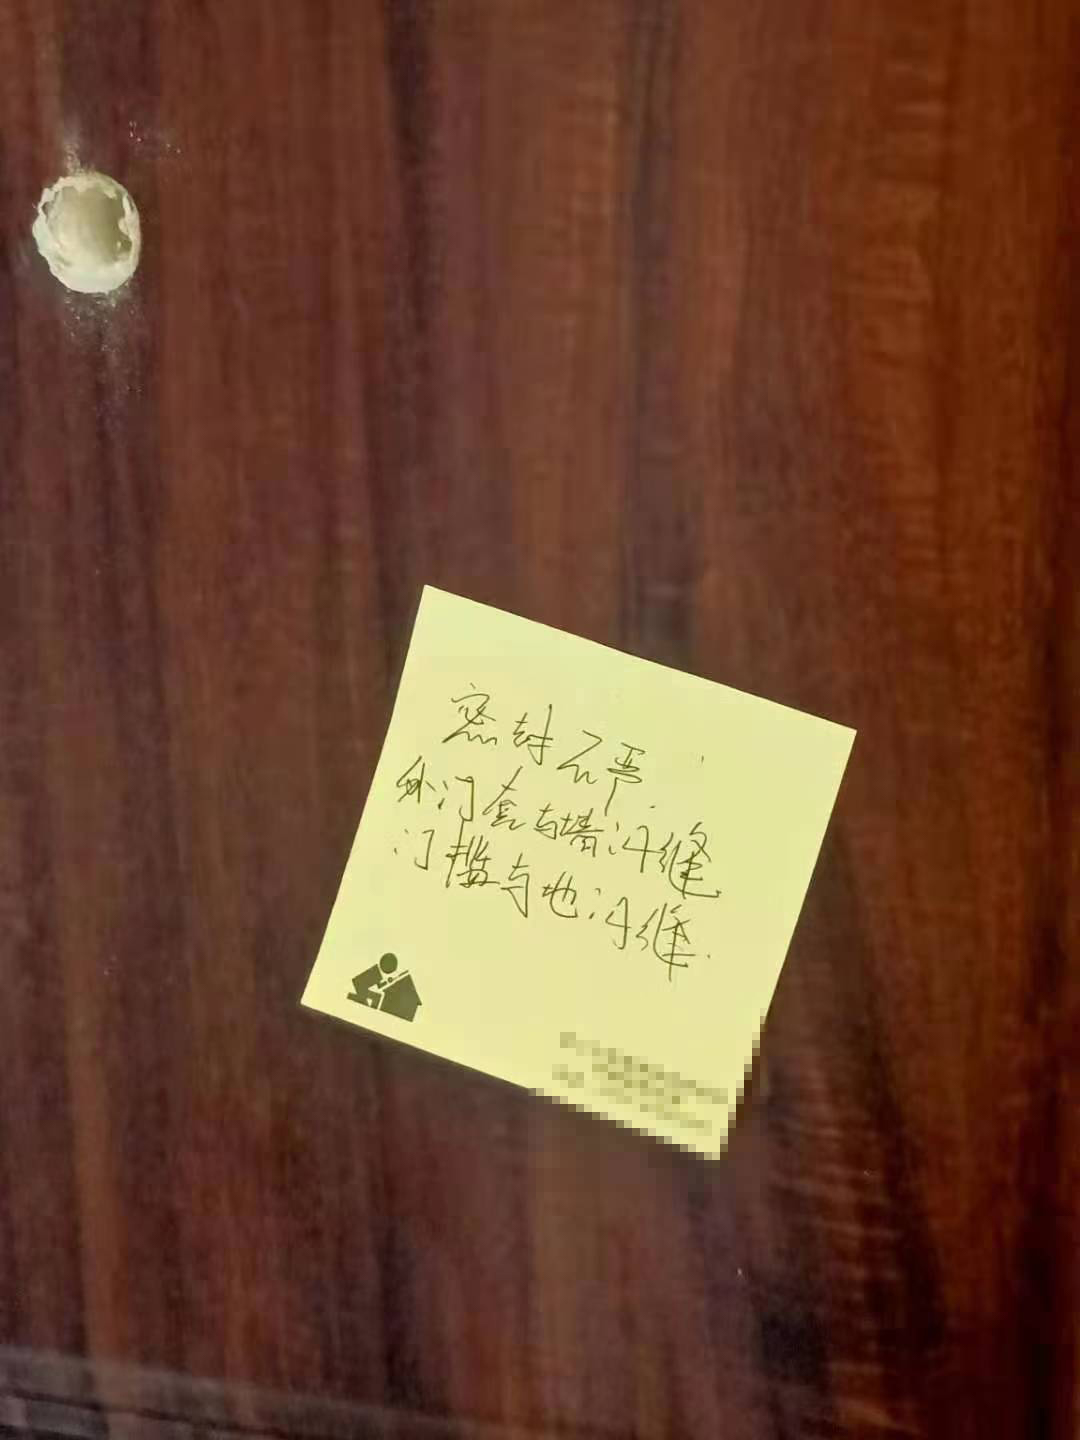 密封不严.
外门套与墙没缝
门槛与地没缝.